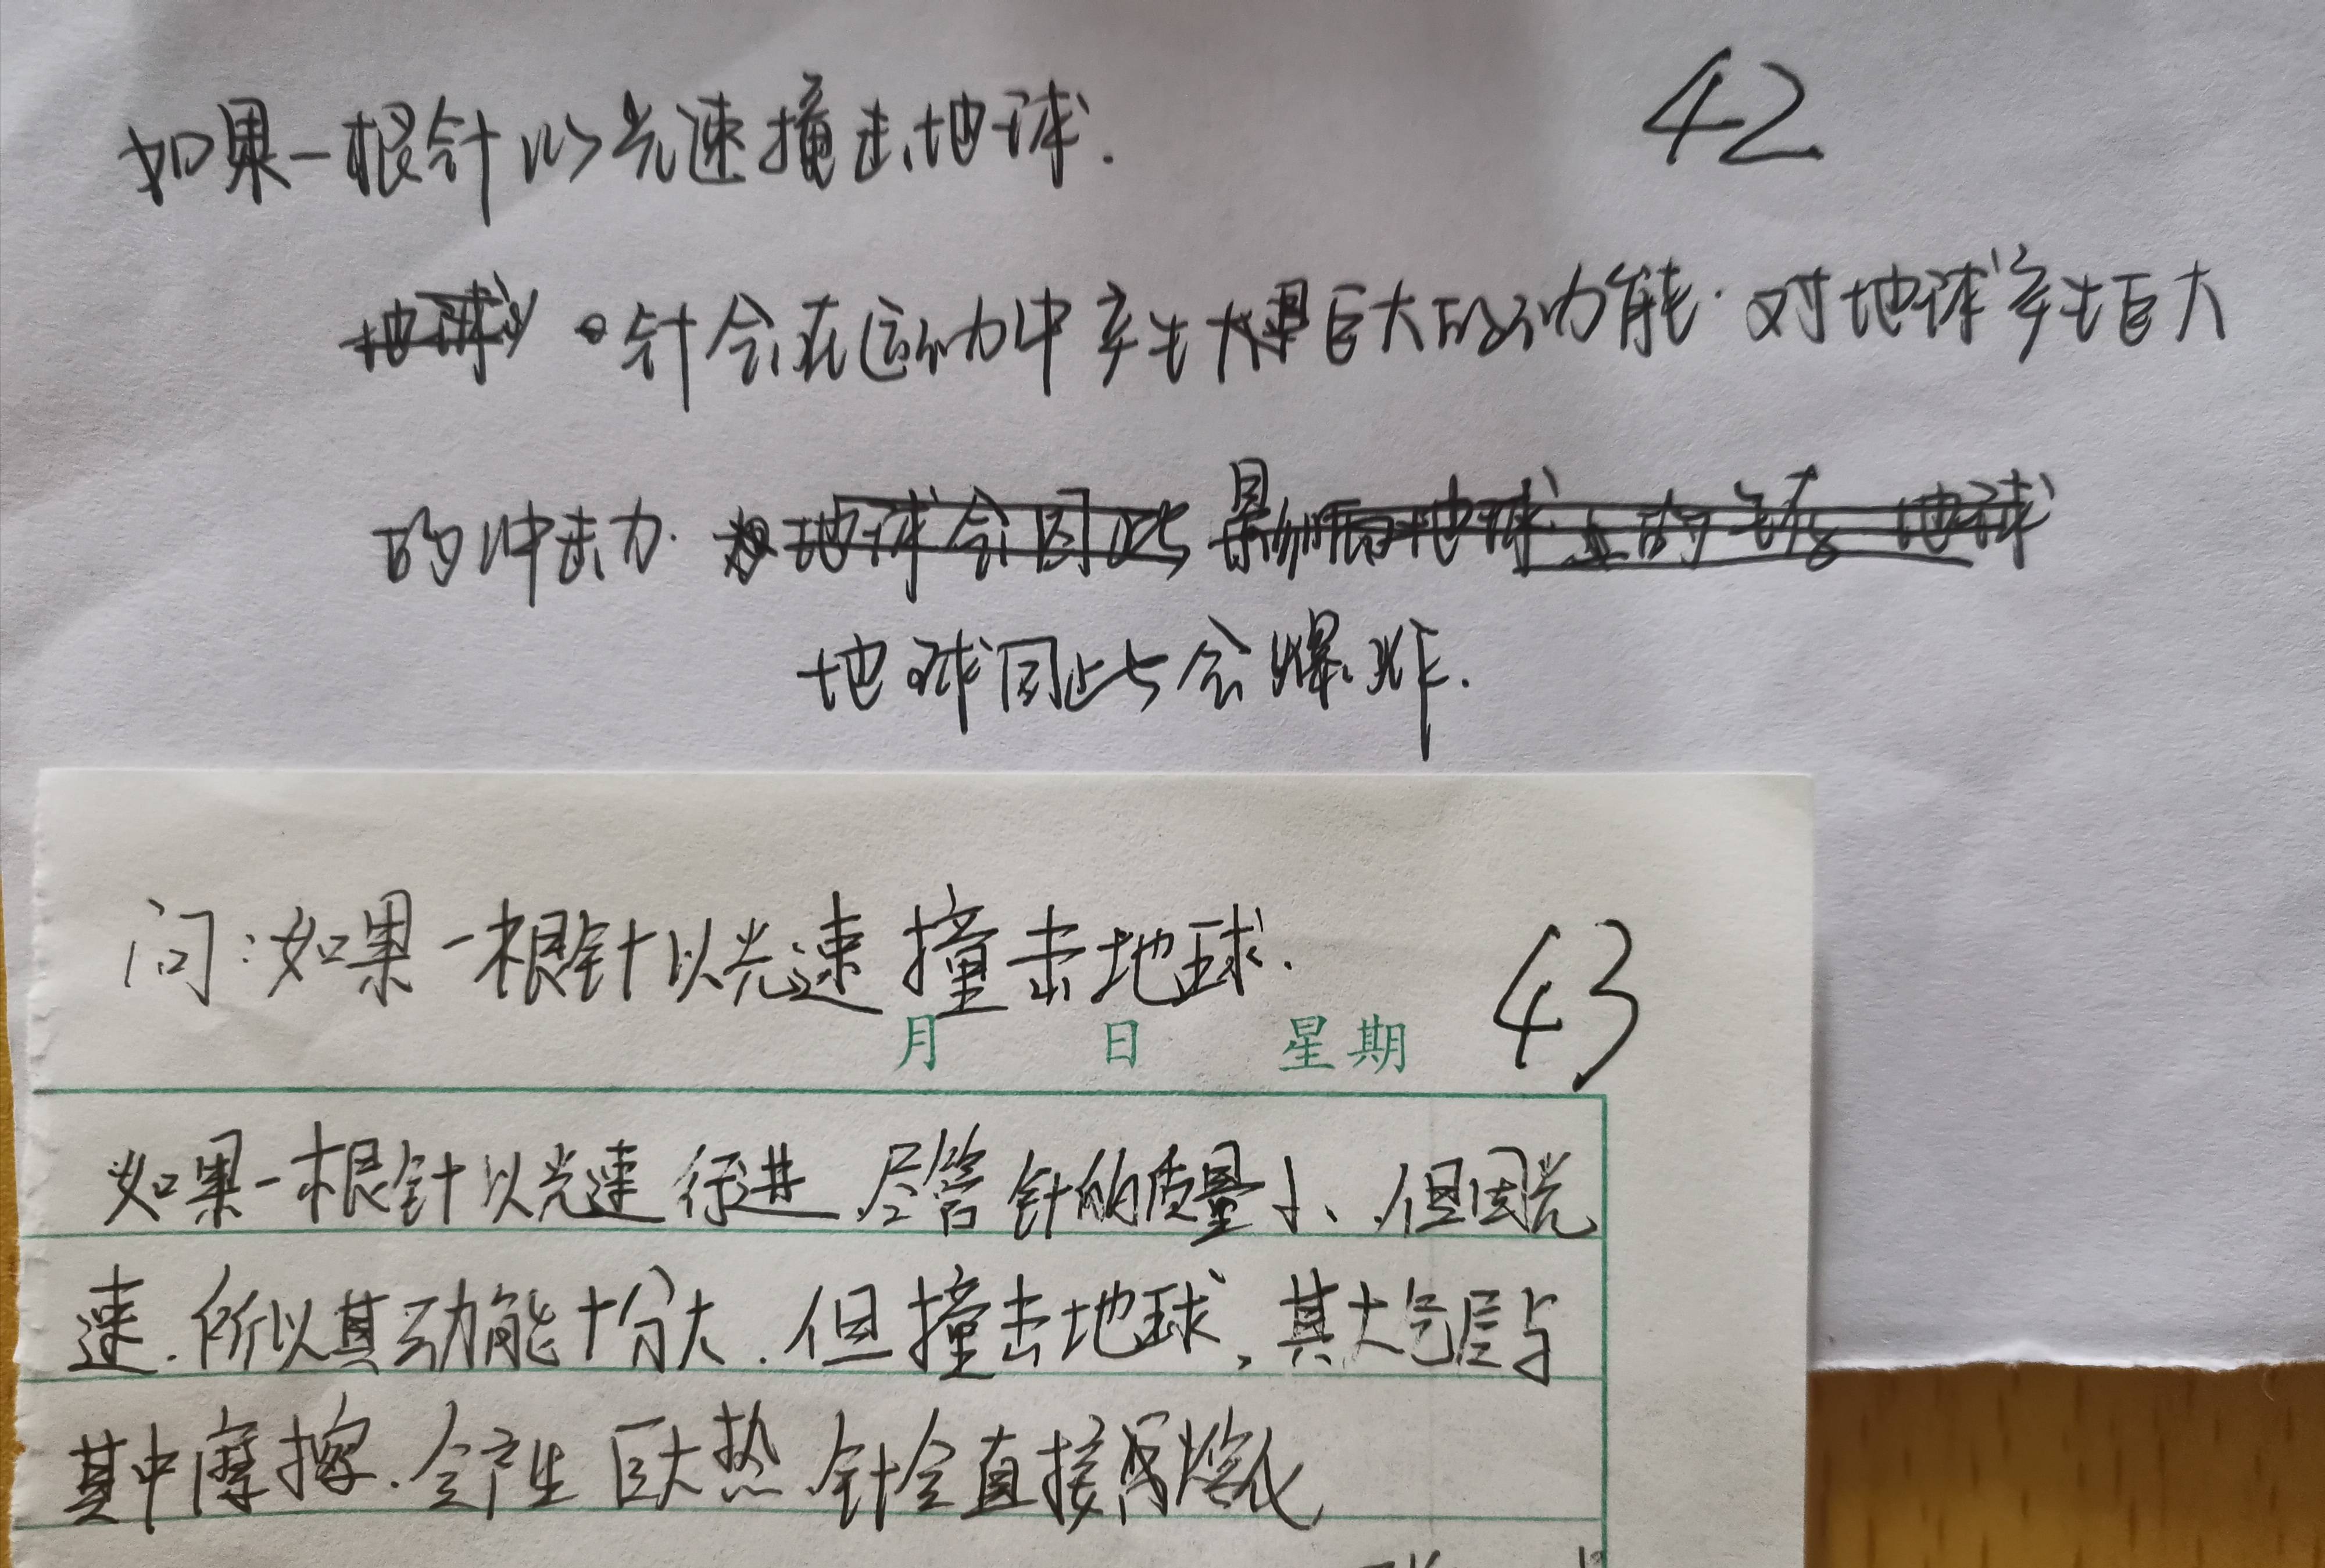 如果一根针以光速撞击地球.
42
针会在运动中产生巨大的动能.对地球产生巨大
的冲击力.
地球因此会爆炸.
问:如果一根针以光速撞击地球.
43
月 日 星期
如果一根针以光速行进,尽管针的质量小、但因光
速.所以其动能十分大.但撞击地球,其大气层与
其中摩擦.会产生巨大热.针会直接熔化